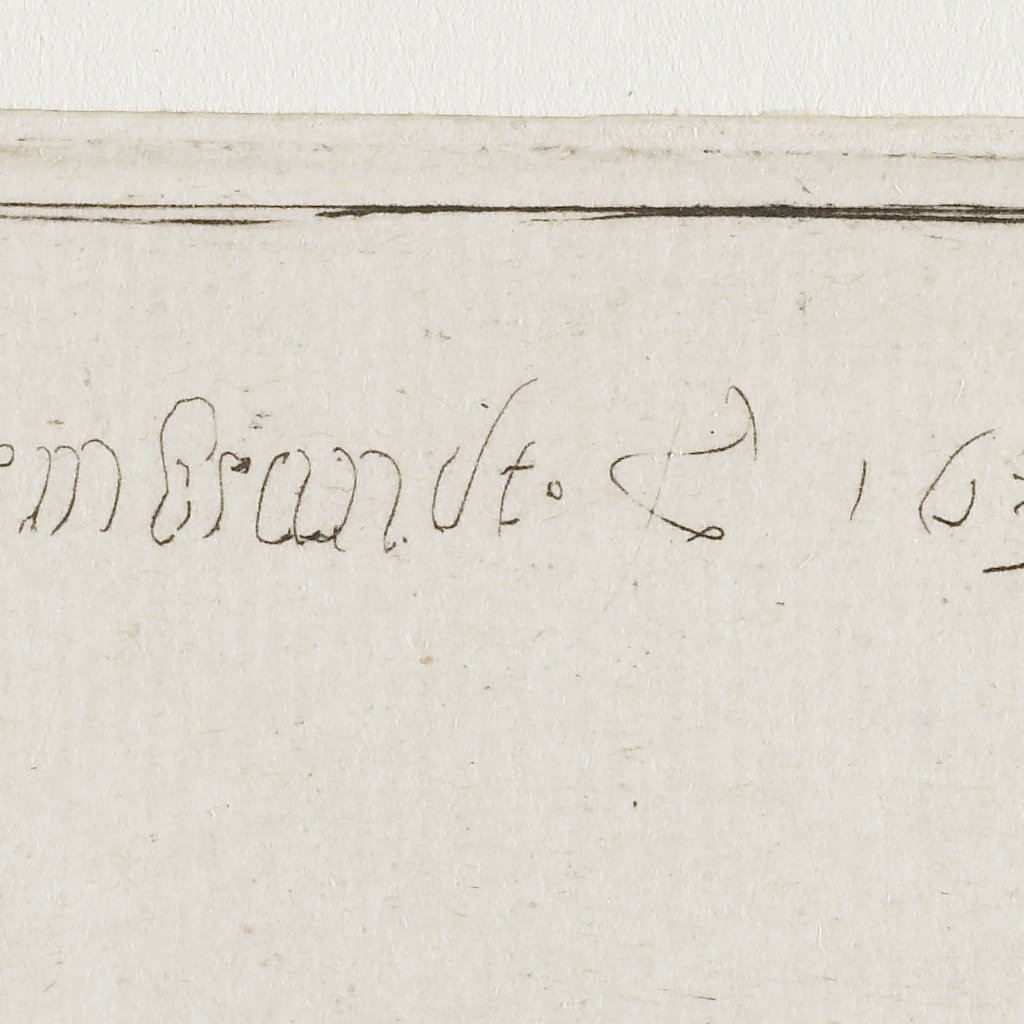 embrandt. f 163